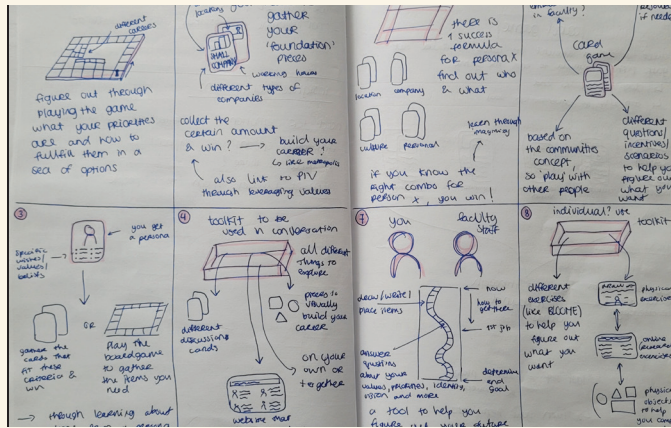 different
careers
figure out through
playing the game
what your priorities
are and how to
fullfill them in a
sea of options
locations
gather
your
'foundation'
pieces
SMALL
COMPANY
working hours
different types of
companies
collect the
certain amount
& win?
build your
career!
also link to PIV
through leveraging values
there is
1 success
formula
for persona X
find out who
& what
location
company
culture
personal
learn through
if you know the
right combos for
person x, you win!
in faculty?
if needed
card
game
based on
the communities
concept,
so 'play' with
other people
different
questions/
incentives/
scenarios
to help you
figure out
what you
want
3
you get
a persona
specific
wishes/
values/
beliefs
gather the
cards that
fit these
criteria &
win
OR
Play the
boardgame
to gather
the items you
need
through learning about
4
toolkit to be
used in conversation
all different
things to
explore
different
discussion
cards
pieces to
visually
build your
career
on your
own or
together
welcome mat
7
you
faculty
staff
draw/write/
place items
now
how to
get there
1st job
answer
questions
about your
values, priorities, identity,
vision and more
determine
end
goal
a tool to help you
figure out your future
8
individual? use
toolkit
different
exercises
to help you
figure out
what you
want
online
to help